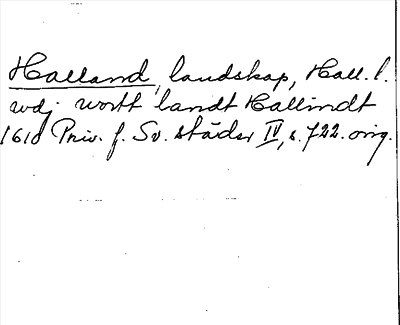 Halland, landskap, Hall. l.
udj wortt landt Hallindt
1610 Priv. f. Sv. städer IV, s. 722. orig.